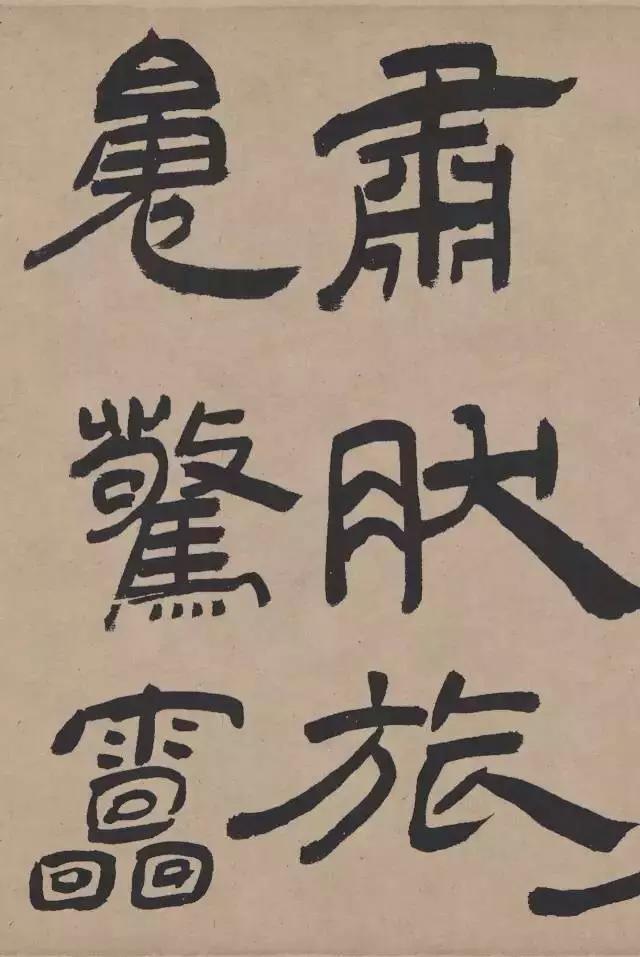 肅肰旅
驚靁